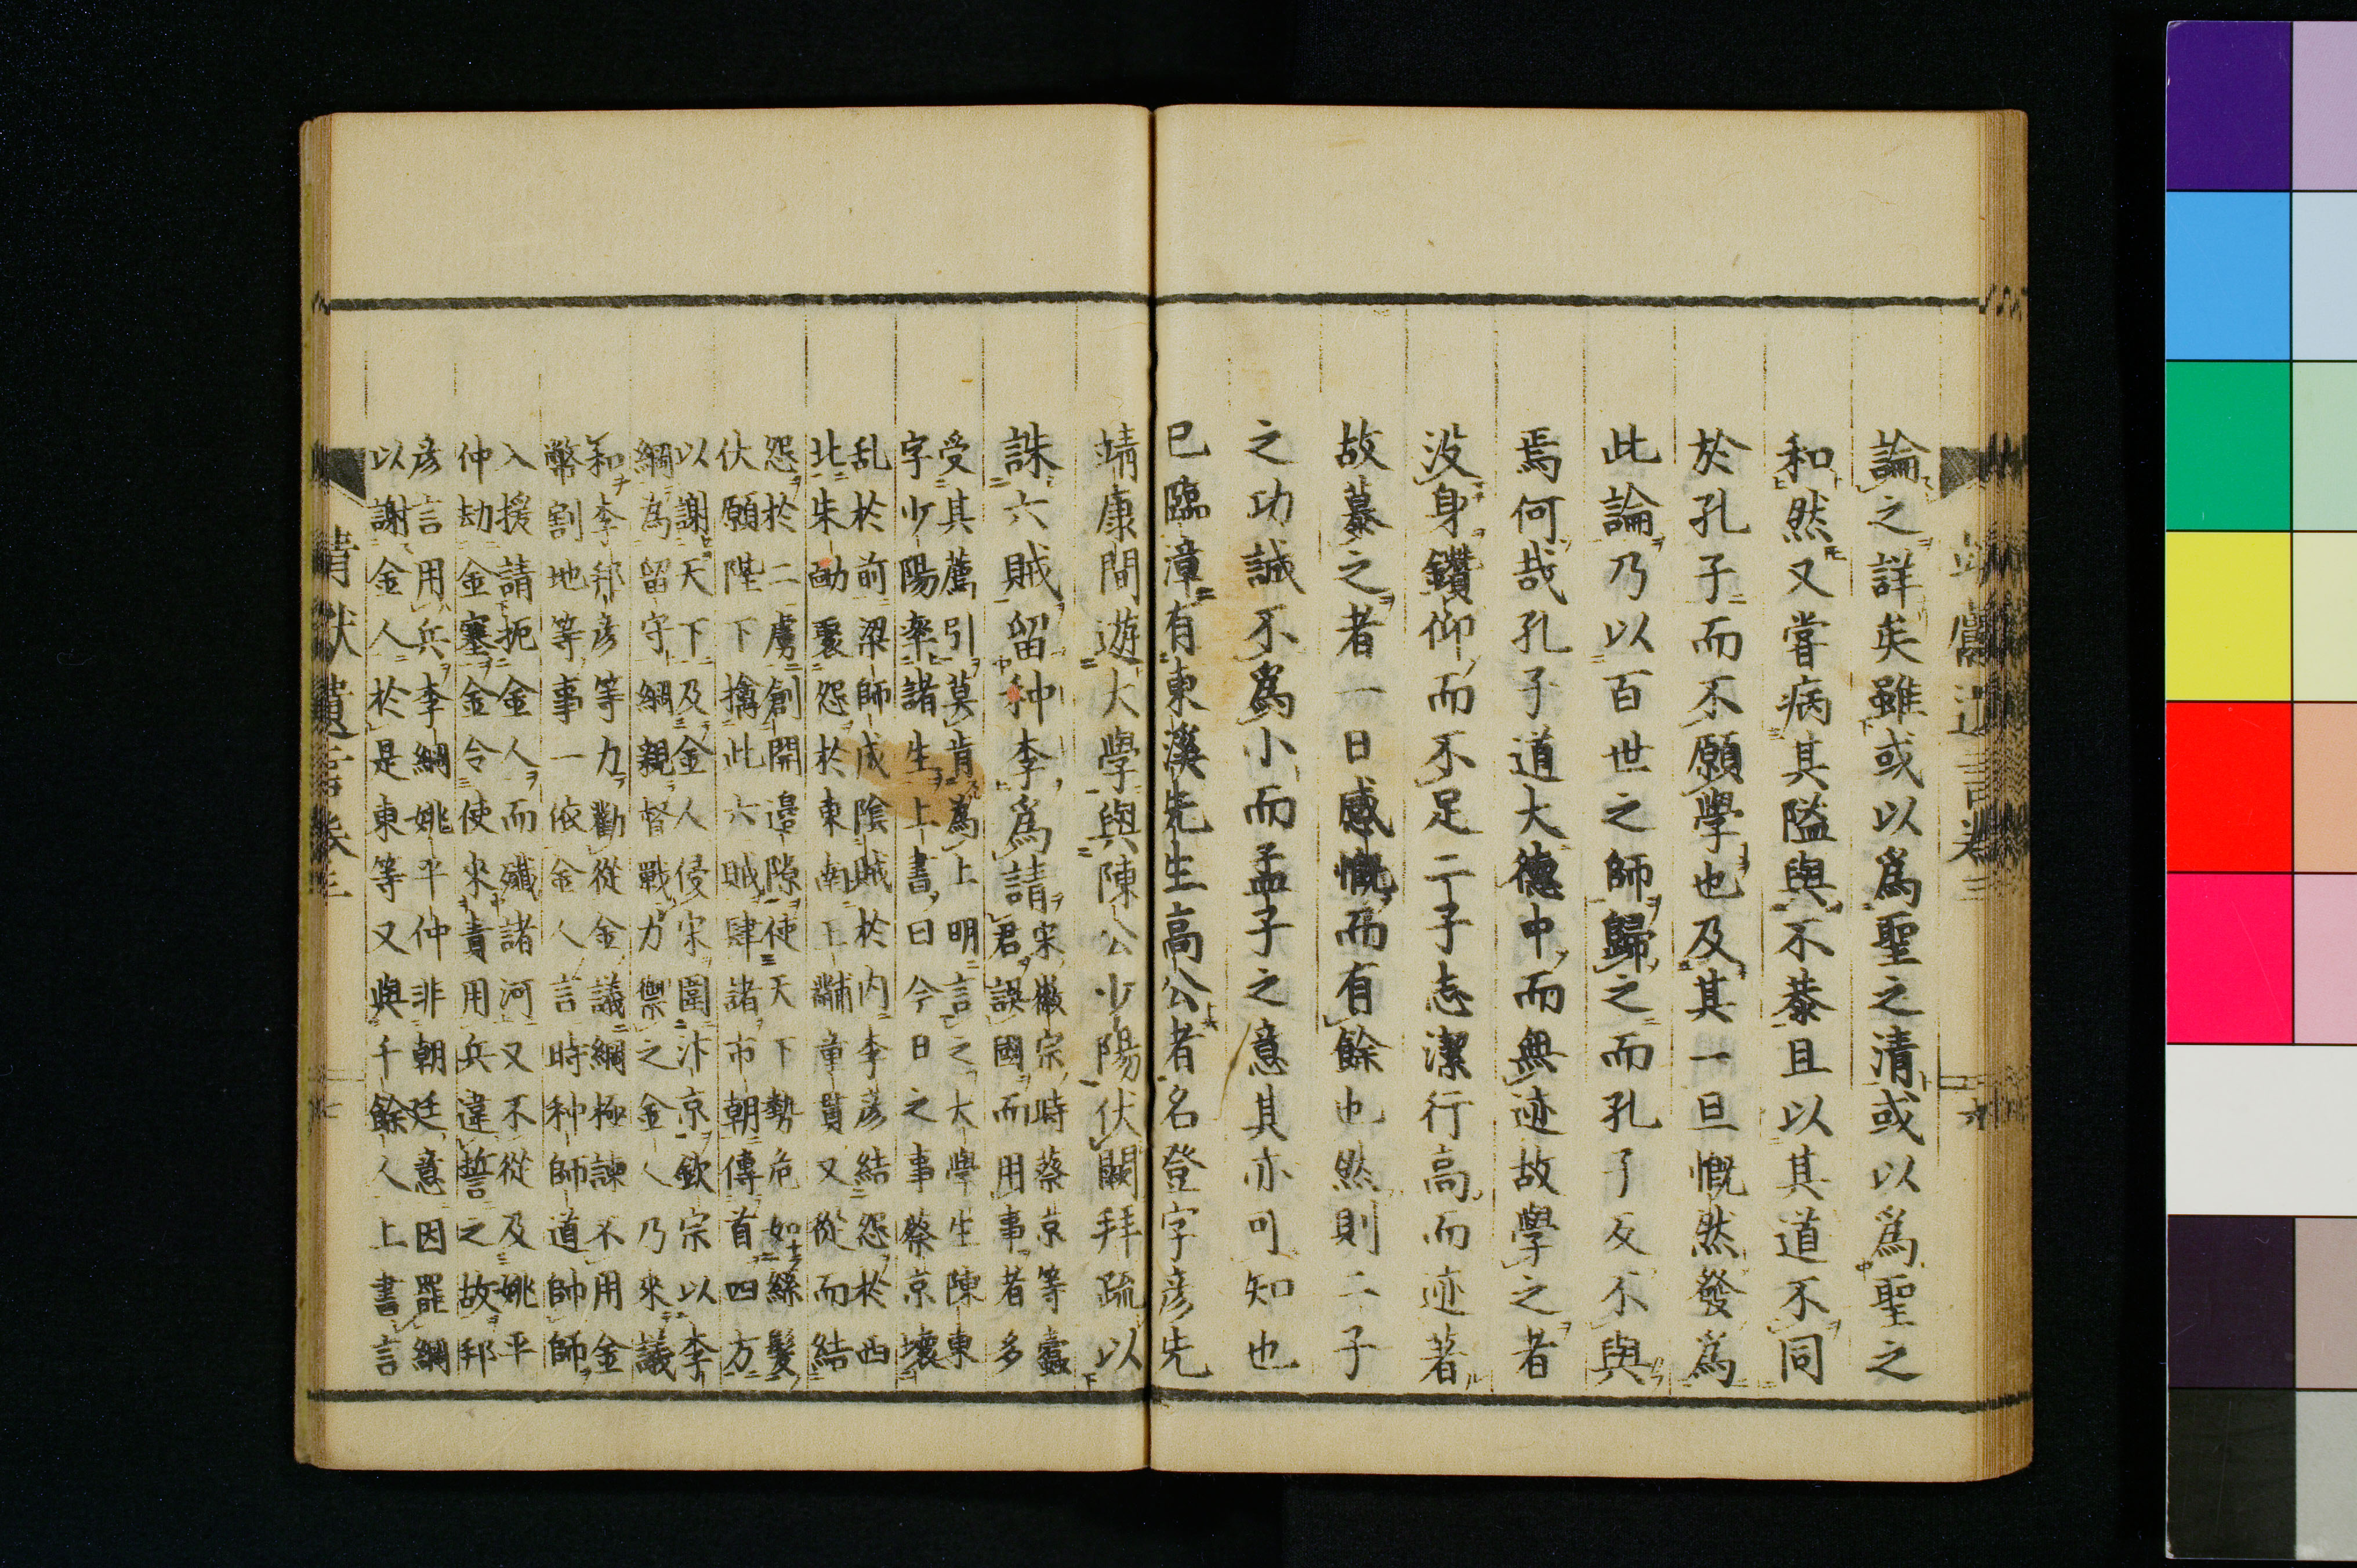 論之詳矣雖或以爲聖之清或以爲聖之
和然又嘗病其隘與不恭且以其道不同
於孔子而不願學也及其一旦慨然發爲
此論乃以百世之師歸之而孔子反不與
焉何哉孔子道大德中而無迹故學之者
没身鑽仰而不足二子志潔行高而迹著
故慕之者一日感慨而有餘也然則二子
之功誠不爲小而孟子之意其亦可知也
已臨漳有東溪先生高公者名登字彦先
靖康間遊大學與陳公少陽伏闕拜疏以
誅六賊留种李爲請
宋徽宗時蔡京等蠹
君誤國而用事者多
受其薦引莫肯爲上明言之大學生陳東
字少陽率諸生上書曰今日之事蔡京壞
乱於前梁師成陰賊於内李彦結怨於西
北朱勔聚怨於東南王黼童貫又從而結
怨於二虜創開邉隙使天下勢危如絲髮
伏願陛下擒此六賊肆諸市朝傳首四方
以謝天下及金人侵宋圍汴京欽宗以李
綱為留守綱親督戰力禦之金人乃來議
和李邦彦等力勸從金議綱極諫不用金
幣割地等事一依金人言時种師道帥師
入援請扼金人而殲諸河又不從及姚平
仲劫金寨金令使來責用兵違誓之故邦
彦言用兵李綱姚平仲非朝廷意因罷綱
以謝金人於是東等又與千餘人上書言